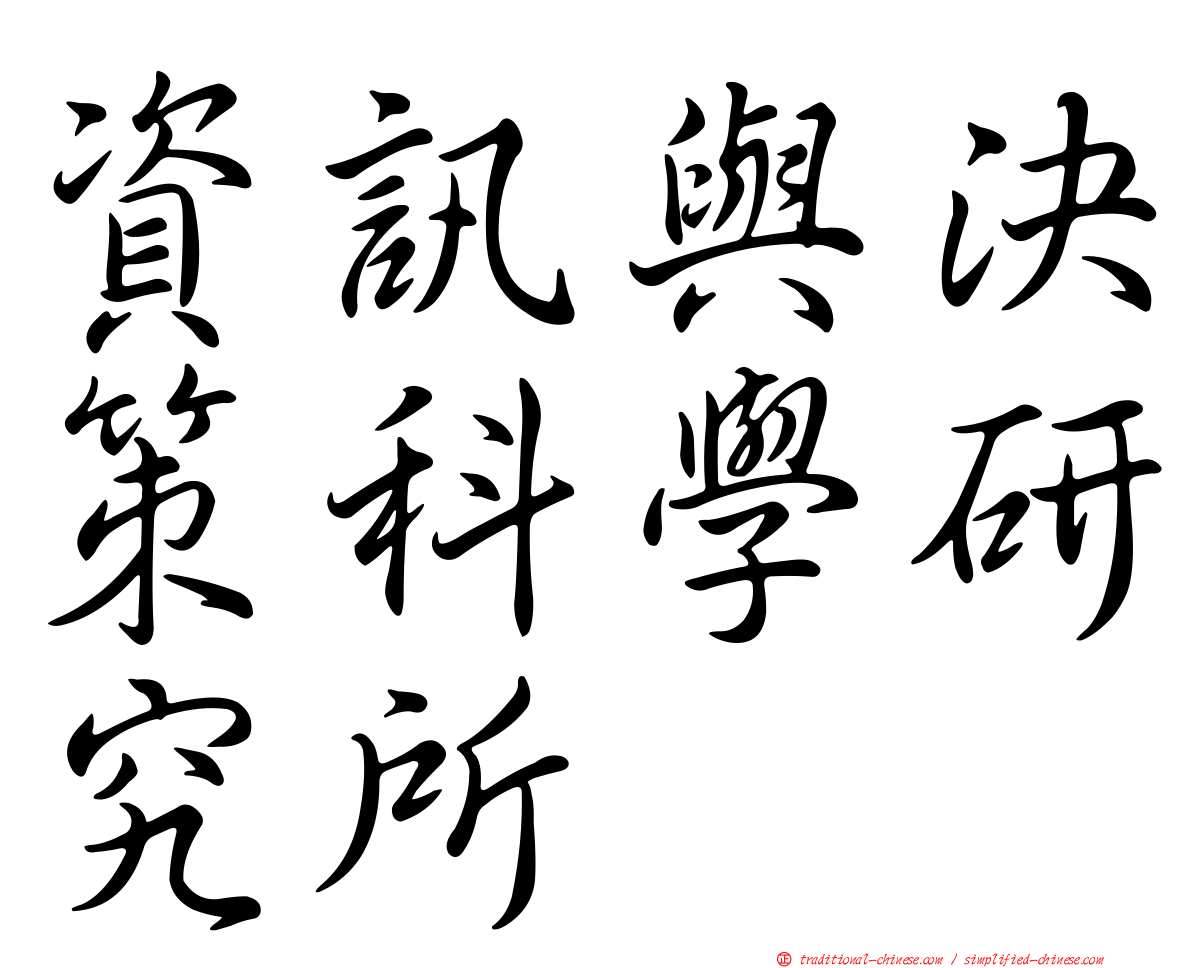 資訊與決
策科學研
究所
正 traditional-chinese.com / simplified-chinese.com